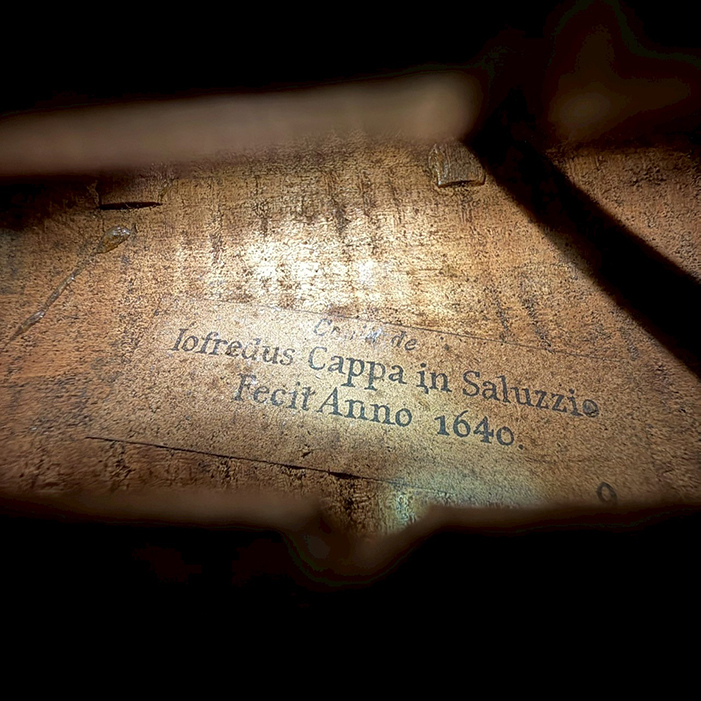 Copia de
Iofredus Cappa in Saluzzio
Fecit Anno 1640.
9